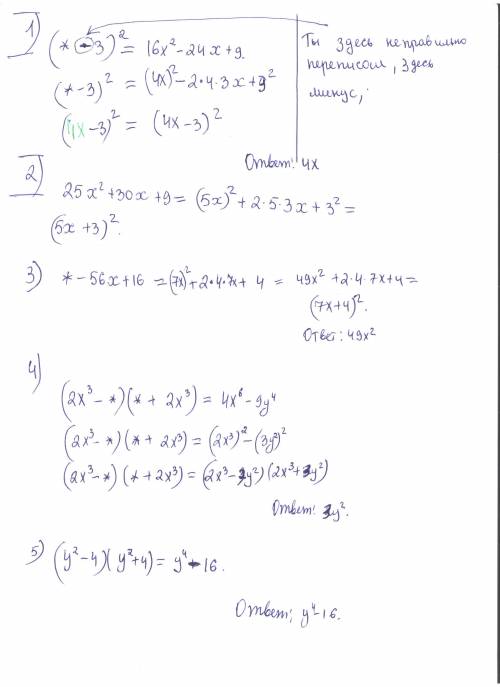 1) (* - 3)² = 16x² - 24x + 9.
Ты здесь неправильно
переписал, здесь
минус,
(* - 3)² = (4x)² - 2*4*3x + 3²
(4x - 3)² = (4x - 3)²
Ответ: 4x
2)
25x² + 30x + 9 = (5x)² + 2·5·3x + 3² =
(5x + 3)².
3) * - 56x + 16 = (7x)² + 2·4·7x + 4 = 49x² + 2·4·7x + 4 =
(7x + 4)².
Ответ: 49x²
4)
(2x³ - *)(* + 2x³) = 4x⁶ - 9y⁴
(2x³ - *)(* + 2x³) = (2x³)² - (3y²)²
(2x³ - *)(* + 2x³) = (2x³ - 3y²)(2x³ + 3y²)
Ответ: 3y².
5) (y² - 4)(y² + 4) = y⁴ - 16.
Ответ: y⁴ - 16.